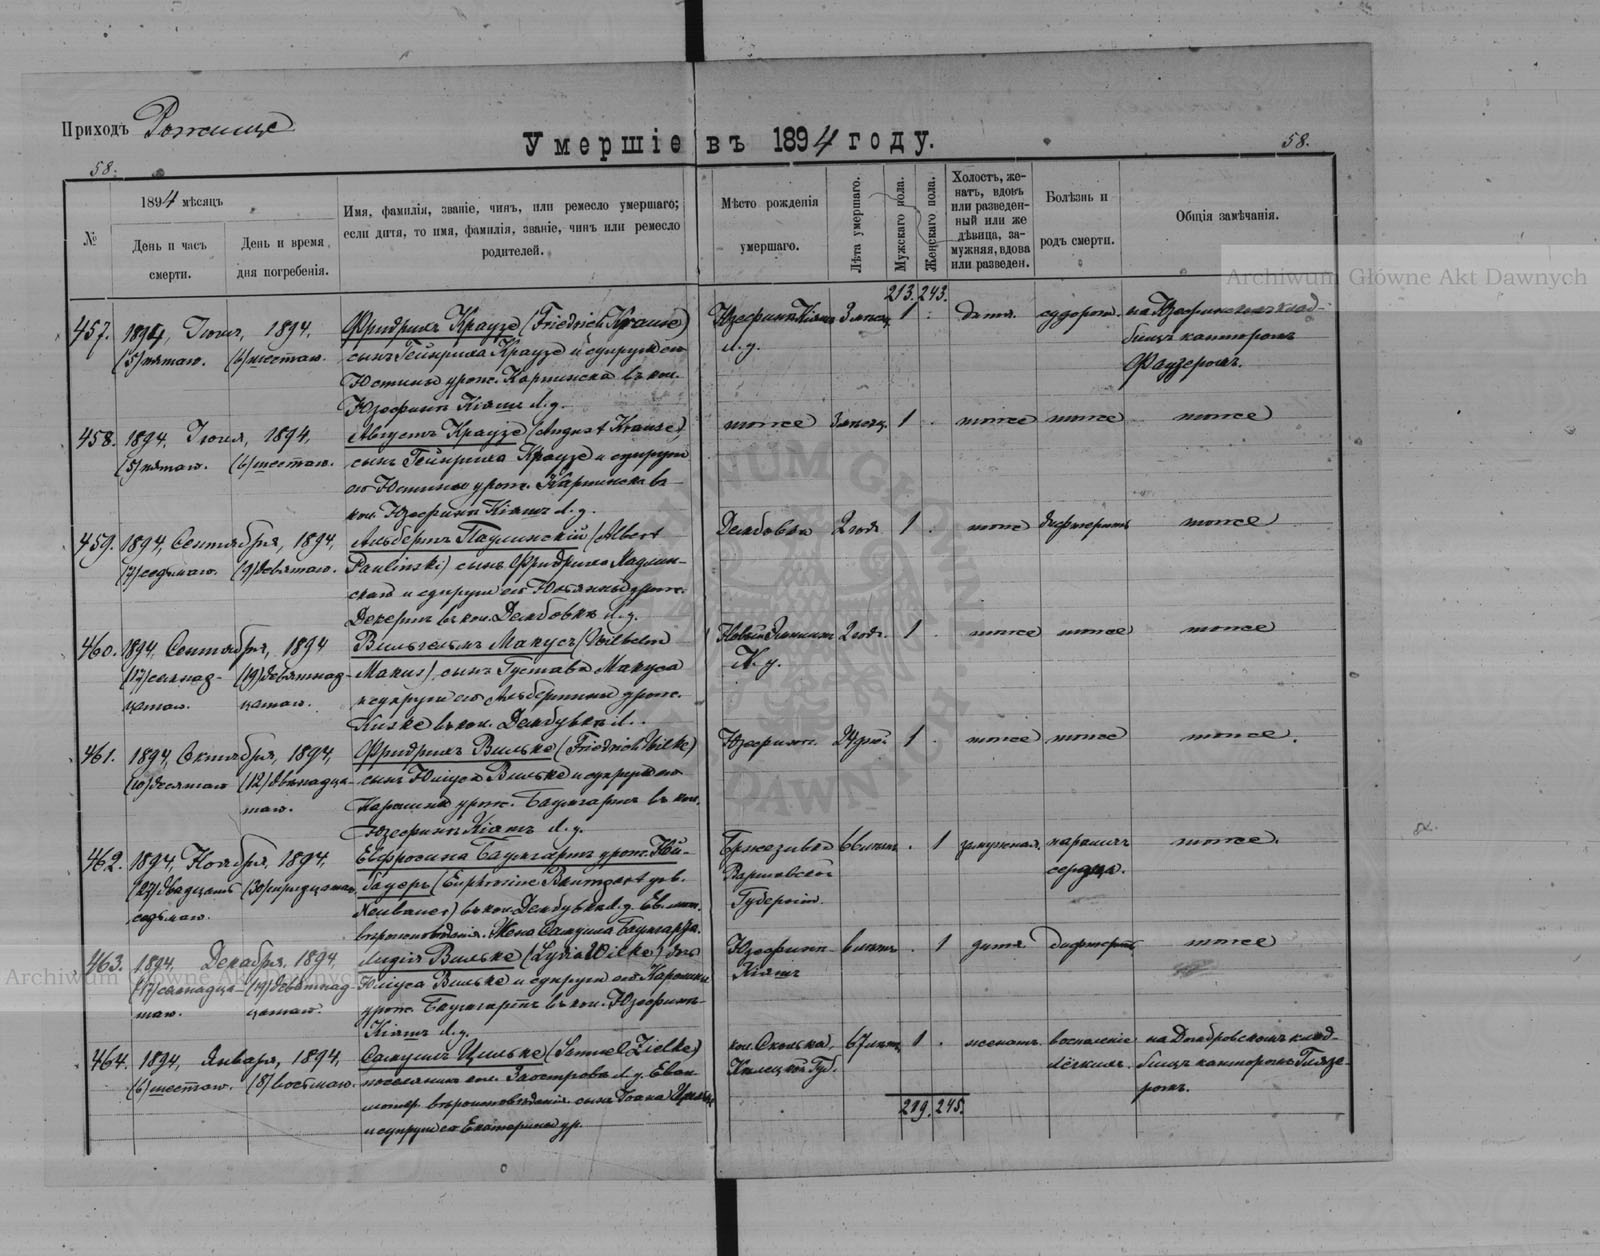 Приходъ Рожище
Умершіе въ 1894 году.
58.
58.
№
1894 мѣсяцъ
День и часъ
смерти.
День и время
дня погребенія.
Имя, фамилія, званіе, чинъ, или ремесло умершаго;
если дитя, то имя, фамилія, званіе, чинъ или ремесло
родителей.
Мѣсто рожденія
умершаго.
Лѣта умершаго.
Мужскаго пола.
Женскаго пола.
Холостъ, же-
натъ, вдовъ
или разведен-
ный или же
дѣвица, за-
мужняя, вдова
или разведен.
Болѣзнь и
родъ смерти.
Общія замѣчанія.
213. 243.
457. 1894, Іюня, 1894,
(5) пятаго. (6) шестаго.
Фридрихъ Краузе (Friedrich Krause)
сынъ Гейнриха Краузе и супруги его
Юстины урож. въ кол.
Юзефинъ Кіятъ Л. у.
Юзефинъ Кіятъ
Л. у.
1
дитя.
на клад-
бищѣ канторомъ
458. 1894, Іюня, 1894,
(5) пятаго. (6) шестаго.
Августъ Краузе (August Krause),
сынъ Гейнриха Краузе и супруги
его Юстины урож. въ
кол. Юзефинъ Кіятъ Л. у.
тоже
1
тоже тоже тоже
459. 1894, Сентября, 1894,
(7) седьмаго. (9) девятаго.
Альбертъ Паулинскій (Albert
Paulinski) сынъ Фридриха
и супруги его урож.
въ кол. Дембовкѣ Л. у.
Дембовка 2 года 1
тоже дифтеритъ тоже
460. 1894, Сентября, 1894
(17) семнад- (19) девятнад-
цатаго. цатаго.
Вильгельмъ Макусъ (Wilhelm
Makus) сынъ Густава Макуса
и супруги его Альбертины урож.
въ кол. Дембувкѣ Л.
Новый
2 года. 1
тоже тоже тоже
461. 1894, Октября, 1894,
(10) десятаго (12) двѣнадца-
таго.
Фридрихъ Вильке (Friedrich Wilke)
сынъ Юліуса Вильке и супруги его
Каролины урож. Баумгартъ въ кол.
Юзефинъ Кіятъ Л. у.
Юзефинъ.
1
тоже тоже тоже.
462. 1894, Ноября, 1894,
(27) двадцать (30) тридцатаго.
седьмаго.
Евфросина Баумгартъ урож. Ней-
бауеръ (Euphrosine Baumgart geb.
Neubauer) въ кол. Дембувкѣ Л. у. Ев. лют.
вѣроисповѣданія. Жена Самуила Баумгарта.
Варшавской
Губерніи.
66 лѣтъ . 1
замужняя. параличъ
сердца.
тоже.
463. 1894 Декабря, 1894
(17) семнадца- (19) девятнад-
таго. цатаго.
Лидія Вильке (Lydia Wilke) дочь
Юліуса Вильке и супруги его Каролины
урож. Баумгартъ въ кол. Юзефинъ-
Кіятъ Л. у.
Юзефинъ-
Кіятъ
6 лѣтъ . 1
дитя дифтеритъ тоже
464. 1894, Января, 1894,
(6) шестаго. (8) восьмаго.
Самуилъ Цильке (Samuel Zielke)
поселянинъ кол. Заостровъ Л. у. Еван.
лютер. вѣроисповѣданія. сынъ Іоана Цильке
и супруги его Екатерины ур.
кол.
Кѣлецкой Губ.
67 лѣтъ 1 .
женатъ. воспаленіе
лёгкихъ.
на Домбровскомъ клад-
бищѣ канторомъ Глязе-
ромъ.
219. 245.
Archiwum Główne Akt Dawnych
Archiwum Główne Akt Dawnych
ARCHIWUM GŁÓWNE AKT DAWNYCH